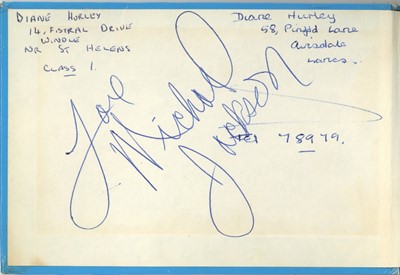 DIANE HURLEY
14, FISTRAL DRIVE
WINDLE
NR ST HELENS
CLASS 1.
Diane Hurley
58, Pinfold Lane
Ainsdale
Lancs.
Love
Michael
Jackson
TEL 78979.